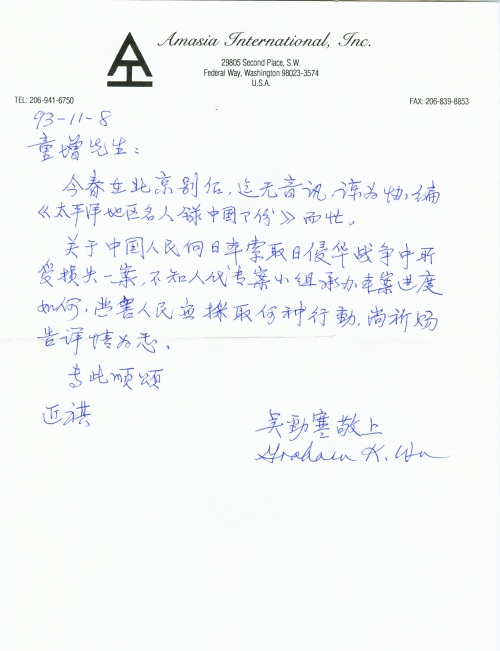 Amasia International, Inc.
29805 Second Place, S.W.
Federal Way, Washington 98023-3574
U.S.A.
TEL: 206-941-6750
FAX: 206-839-8853
93-11-8
童增先生:
今春在北京别后,迄无音讯,谅为忙编
《太平洋地区名人录中国部份》而忙。
关于中国人民向日本索取日侵华战争中所
受损失一案,不知人代专案小组承办本案进度
如何,受害人民要採取何种行動,尚祈赐
告详情为感。
专此顺颂
近祺
吴勁寒敬上
Graham K. Wu